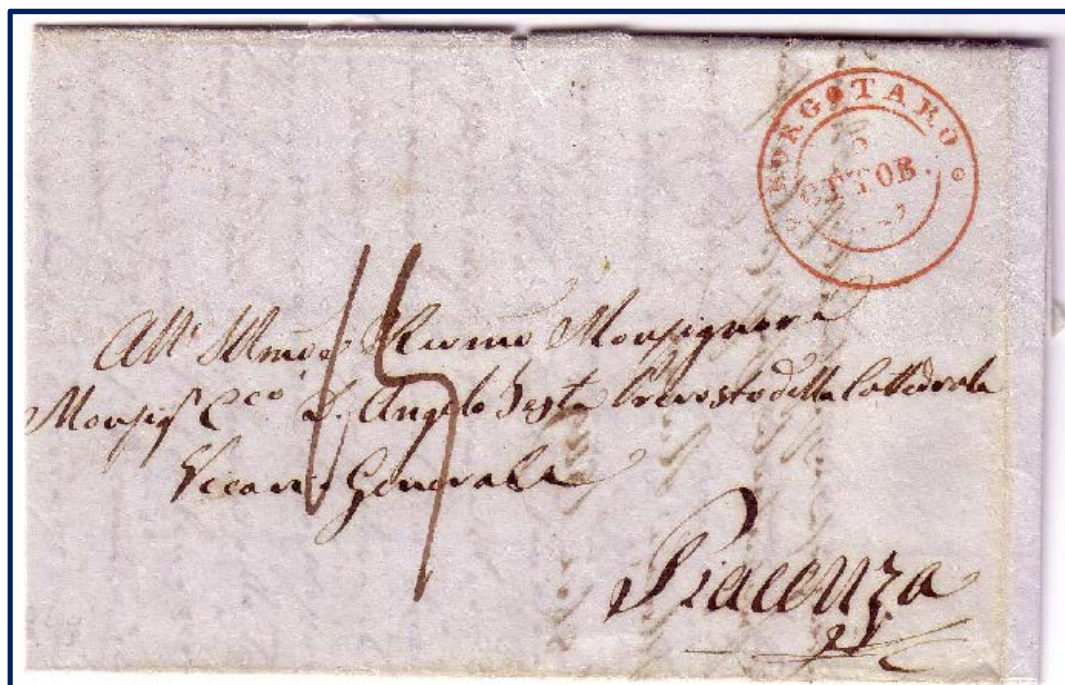 BORGOTARO
OTTOB.
15
All' Illmo e Revmo Monsignore
Monsigr D. Angelo Testa Prevosto della Cattedrale
Vicario Generale
Piacenza